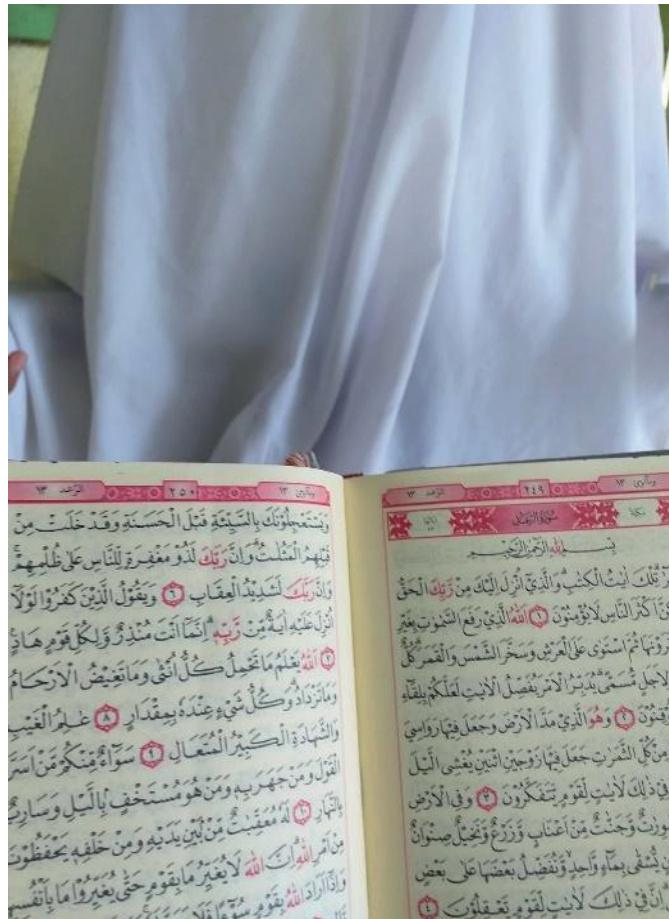 وماأبرئ ١٣
٢٤٩
الرعد ١٣
سورة الرعد
بسم الله الرحمن الرحيم
تِلْكَ اٰيٰتُ الْكِتٰبِۗ وَالَّذِيْٓ اُنْزِلَ اِلَيْكَ مِنْ رَّبِّكَ الْحَقُّ
اَكْثَرَ النَّاسِ لَا يُؤْمِنُوْنَ ١ اَللّٰهُ الَّذِيْ رَفَعَ السَّمٰوٰتِ بِغَيْرِ
تَرَوْنَهَا ثُمَّ اسْتَوٰى عَلَى الْعَرْشِ وَسَخَّرَ الشَّمْسَ وَالْقَمَرَۗ كُلٌّ
لِاَجَلٍ مُّسَمًّىۗ يُدَبِّرُ الْاَمْرَ يُفَصِّلُ الْاٰيٰتِ لَعَلَّكُمْ بِلِقَاۤءِ
٢ وَهُوَ الَّذِيْ مَدَّ الْاَرْضَ وَجَعَلَ فِيْهَا رَوَاسِيَ
مِنْ كُلِّ الثَّمَرٰتِ جَعَلَ فِيْهَا زَوْجَيْنِ اثْنَيْنِ يُغْشِى الَّيْلَ
فِيْ ذٰلِكَ لَاٰيٰتٍ لِّقَوْمٍ يَّتَفَكَّرُوْنَ ٣ وَفِى الْاَرْضِ
وَّجَنّٰتٌ مِّنْ اَعْنَابٍ وَّزَرْعٌ وَّنَخِيْلٌ صِنْوَانٌ
يُّسْقٰى بِمَاۤءٍ وَّاحِدٍۙ وَّنُفَضِّلُ بَعْضَهَا عَلٰى بَعْضٍ
اِنَّ فِيْ ذٰلِكَ لَاٰيٰتٍ لِّقَوْمٍ يَّعْقِلُوْنَ ٤
وماأبرئ ١٣
٢٥٠
الرعد ١٣
وَيَسْتَعْجِلُوْنَكَ بِالسَّيِّئَةِ قَبْلَ الْحَسَنَةِ وَقَدْ خَلَتْ مِنْ
قَبْلِهِمُ الْمَثُلٰتُۗ وَاِنَّ رَبَّكَ لَذُوْ مَغْفِرَةٍ لِّلنَّاسِ عَلٰى ظُلْمِهِمْۚ
وَاِنَّ رَبَّكَ لَشَدِيْدُ الْعِقَابِ ٦ وَيَقُوْلُ الَّذِيْنَ كَفَرُوْا لَوْلَآ
اُنْزِلَ عَلَيْهِ اٰيَةٌ مِّنْ رَّبِّهٖۗ اِنَّمَآ اَنْتَ مُنْذِرٌ وَّلِكُلِّ قَوْمٍ هَادٍ
٧ اَللّٰهُ يَعْلَمُ مَا تَحْمِلُ كُلُّ اُنْثٰى وَمَا تَغِيْضُ الْاَرْحَامُ
وَمَا تَزْدَادُۗ وَكُلُّ شَيْءٍ عِنْدَهٗ بِمِقْدَارٍ ٨ عٰلِمُ الْغَيْبِ
وَالشَّهَادَةِ الْكَبِيْرُ الْمُتَعَالِ ٩ سَوَاۤءٌ مِّنْكُمْ مَّنْ اَسَرَّ
الْقَوْلَ وَمَنْ جَهَرَ بِهٖ وَمَنْ هُوَ مُسْتَخْفٍۢ بِالَّيْلِ وَسَارِبٌۢ
بِالنَّهَارِ ١٠ لَهٗ مُعَقِّبٰتٌ مِّنْۢ بَيْنِ يَدَيْهِ وَمِنْ خَلْفِهٖ يَحْفَظُوْنَهٗ
مِنْ اَمْرِ اللّٰهِۗ اِنَّ اللّٰهَ لَا يُغَيِّرُ مَا بِقَوْمٍ حَتّٰى يُغَيِّرُوْا مَا بِاَنْفُسِهِمْ
وَاِذَآ اَرَادَ اللّٰهُ بِقَوْمٍ سُوْۤءًا فَلَا